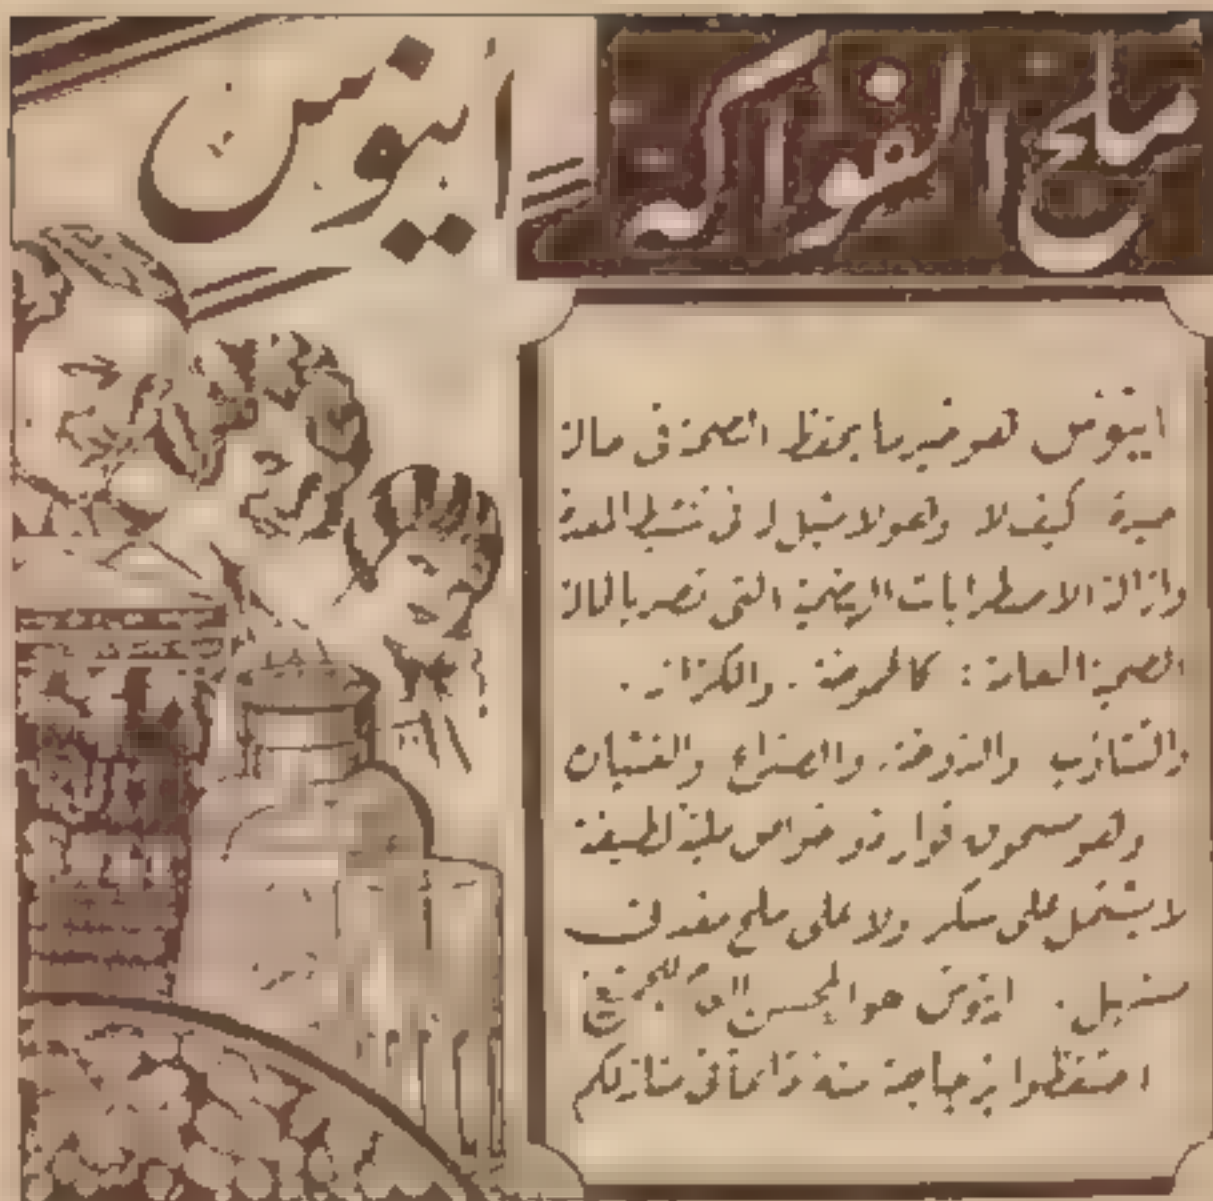 ملح الفواكه
اينوس
اينوس هو خير ما يحفظ الصحة في حالة
جيدة كيف لا وهو لا مثيل له في تنشيط المعدة
وازالة الاضطرابات الهضمية التي تضر بالحالة
الصحية العامة : كالحموضة . والكزاز .
والتثاؤب والدوخة . والصداع والغثيان
وهو مسحوق فوار ذو خواص ملينة لطيفة
لا يشتمل على سكر ولا على ملح معدني
مسهل . اينوس هو المحسن الى للجميع
احتفظوا بزجاجة منه دائماً في منازلكم